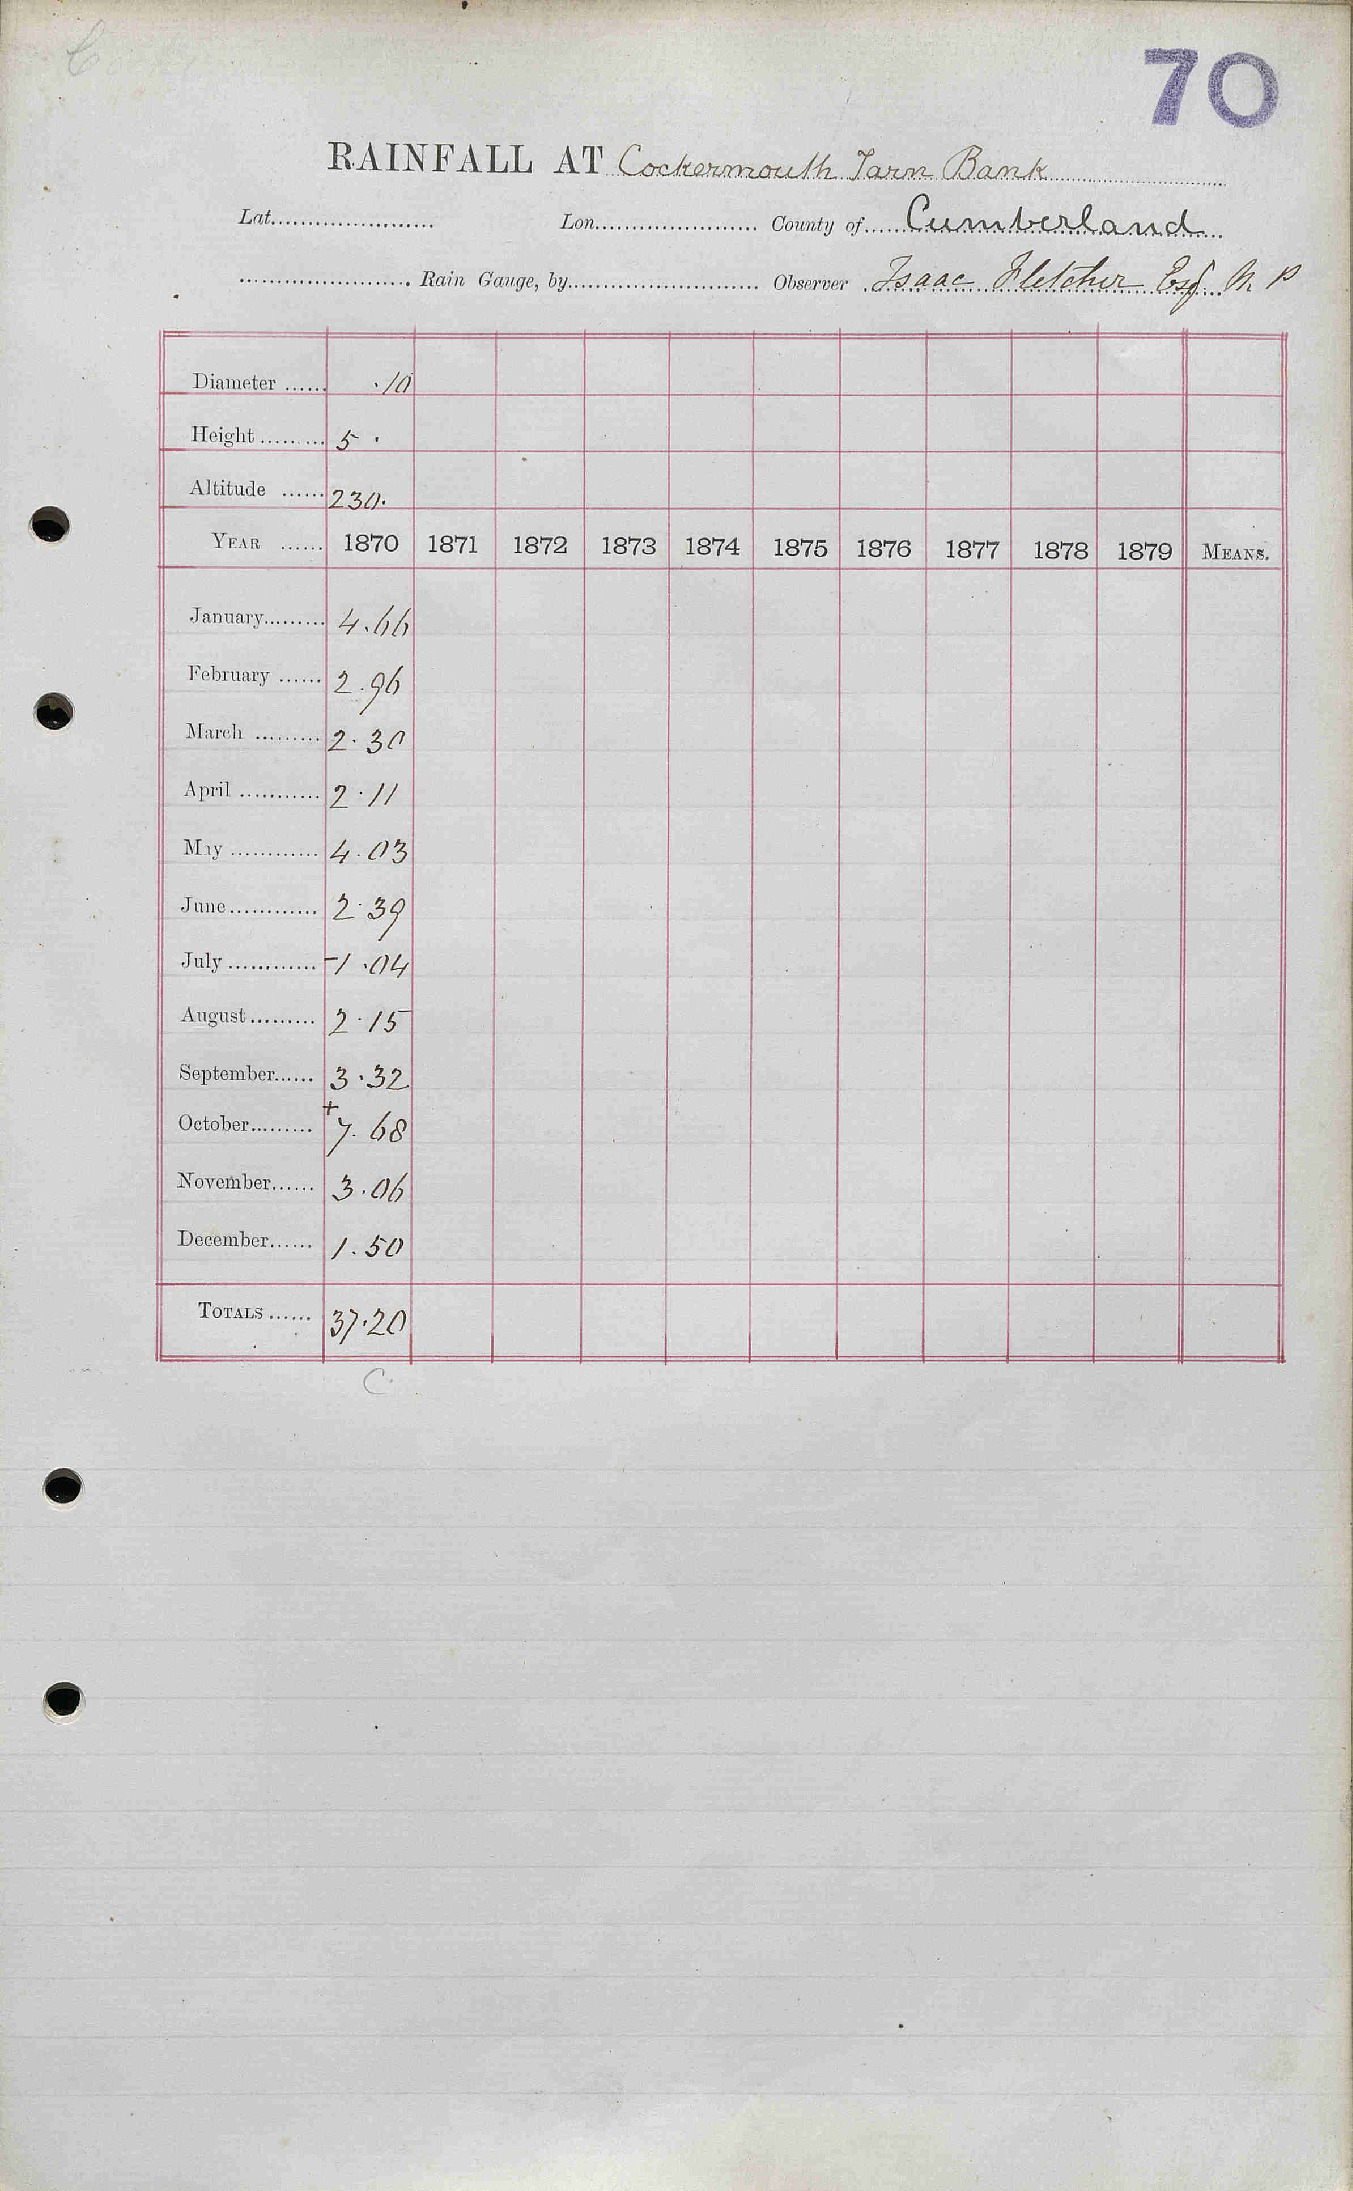 70
RAINFALL AT Cockermouth Tarn Bank
Lat...................... Lon...................... County of......Cumberland
....................... Rain Gauge, by.......................... Observer Isaac Fletcher Esq M P
Diameter ...... .10
Height ......... 5 .
Altitude ...... 230.
YEAR ...... 1870 1871 1872 1873 1874 1875 1876 1877 1878 1879 MEANS.
January......... 4.66
February ...... 2.96
March ......... 2.30
April ........... 2.11
May ............ 4.03
June............ 2.39
July ............ -1.04
August......... 2.15
September...... 3.32
October......... +7.68
November...... 3.06
December...... 1.50
TOTALS ...... 37.20
C.